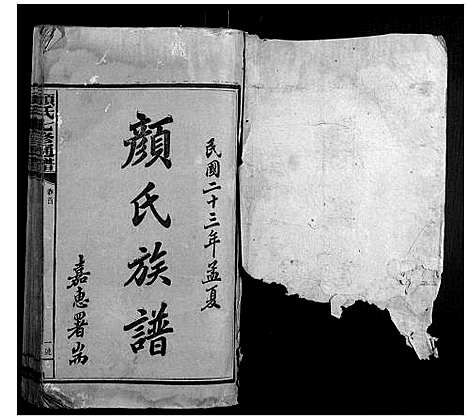 民國二十三年孟夏
顏氏族譜
嘉惠署耑
顏氏七修通譜
卷首